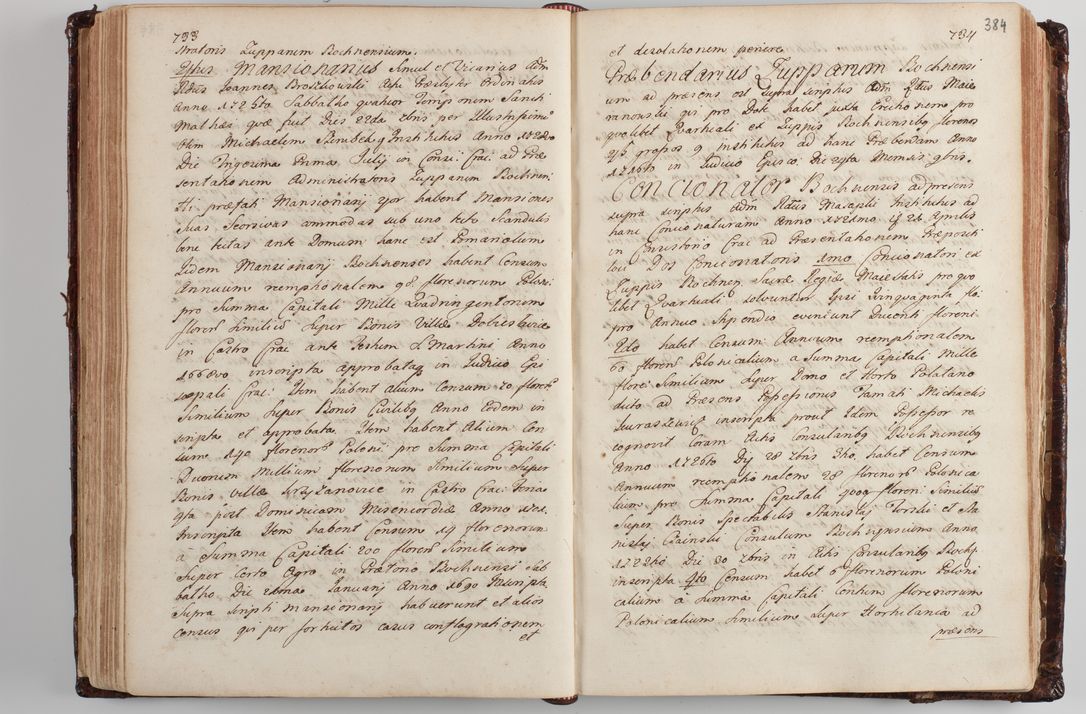 733
stratoris Zupparum Bochnensium.
Mansionarius Simul et Vicarius Adm
Rdus Joannes Broszkowski Actu Præsbyter Ordinatus
Anno 1726to Sabbatho quatuor Temporum Sancti
Mathæi quæ fuit Dies 22da 7bris per Illustrissimu
olim Michaelem Szembek Institutus Anno
Die Trigesima Prima Julij in Consi: Crac: ad Præ
sentationem Administratoris Zupparum Bochnen:
Hi præfati Mansionarij 2or habent Mansiones
suas Seorsivas commodas sub uno tecto Scandulis
bene tectas ante Domum hanc est Pomariolum
Iidem Mansionarij Bochnenses habent Censum
Annuum reemptionalem 98 florenorum Poloni:
pro Summa Capitali Mille Quadringentorum
floren Similiũ Super Bonis Villæ
in Castro Crac: ante Festum S Martini Anno
inscripta approbata in Judicio Epi
scopali Crac: Item habent alium Censum 20 floren
Similium Super Bonis Civilibꝗ Anno Eodem in
scripta et approbata Item habent Alium Cen
sum 140 florenor Poloni: pro Summa Capitali
Duorum Millium florenorum Similium Super
Bonis Villæ Krzyżanowice in Castro Crac: Feria
post Dominicam Misericordiæ Anno
Inscripta Item habent Censum 14 florenorum
a Summa Capitali 200 floren Similium
Super Certo Agro in Prætorio Bochnensi Sab
batho Die Januarij Anno 1690 Inscripta
Supra Scripti Mansionarij habuerunt et alios
Census qui per fortuitos casus conflagrationem
et
384
734
et desolationem periere
Præbendarius Zupparum Bochnensi
um ad præsens est Supra scriptus Adm Rdus Maie
ranowski qui pro Dote habet juxta Erectionem pro
quolibet Quartuali ex Zuppis Bochnensibꝗ florenos
grossos 9 institutus ad hanc Præbendam Anno
in Judicio Episco: Die Mensis 9bris.
Concionator Bochnensis ad præsens
supra scriptus Adm Rdus institutus ad
hanc Concionaturam Anno 24 Aprilis
in Consistorio Crac: ad Præsentationem Præpositi
loci Dos Concionatoris 1mo Concionatori ex
Zuppis Bochnen Sacræ Regiæ Maiestatis pro quo
libet Quartuali solvuntur Ipsi Quinquaginta flo
pro Annuo Stipendio eveniunt Ducenti floreni
2do habet Censum Annuum reemptionalem
60 floren Polonicalium a Summa Capitali Mille
floren: Similium Super Domo et Horto Palatino
dicto ad Præsens Possessionis Famati Michaelis
inscripta prout Idem Possessor re
cognovit Coram Actis Consularibꝗ Bochnensibꝗ
Anno 1726to Die 28 7bris 3tio habet Censum
Annuum reemptionalem 28 florenor Polonica
lium pro Summa Capitali floren: Similiũ
Super Bonis Spectabilis Stanislaj Torski et Sta
nislaj Consulum Bochnensium Anno
Die 30 7bris in Actis Consularibꝗ Bochn:
inscripta 4to Censum habet 6 florenorum Poloni
calium a Summa Capitali Centum florenorum
Polonicalium Similium Super Hortulania ad
præsens